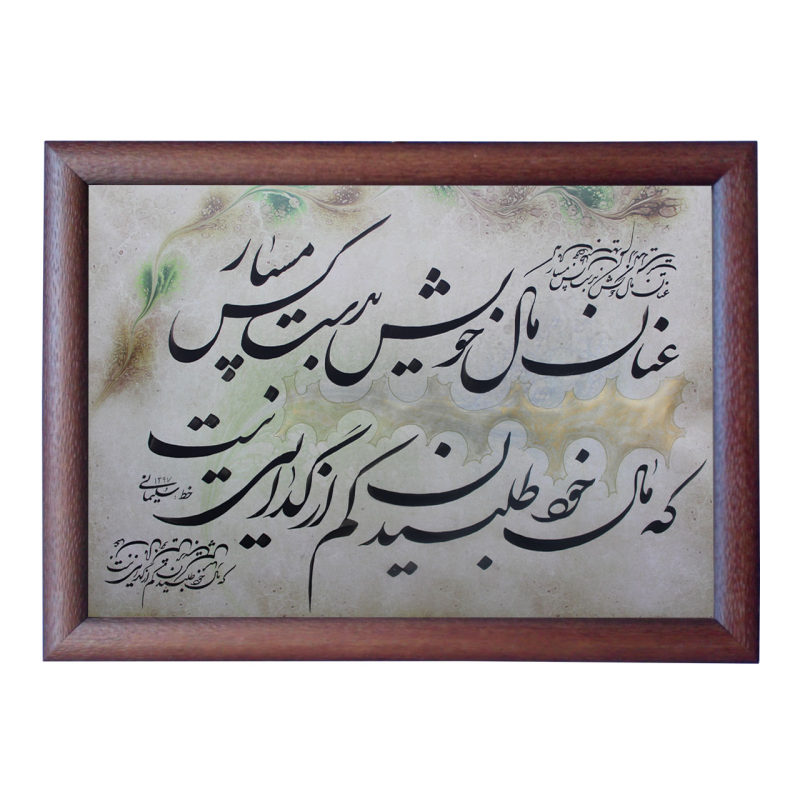 عنان مال خویش بدست کس مسپار
که مال خود طلبیدن کم از گدایی نیست
خط: سلیمانی
۱۳۹۷